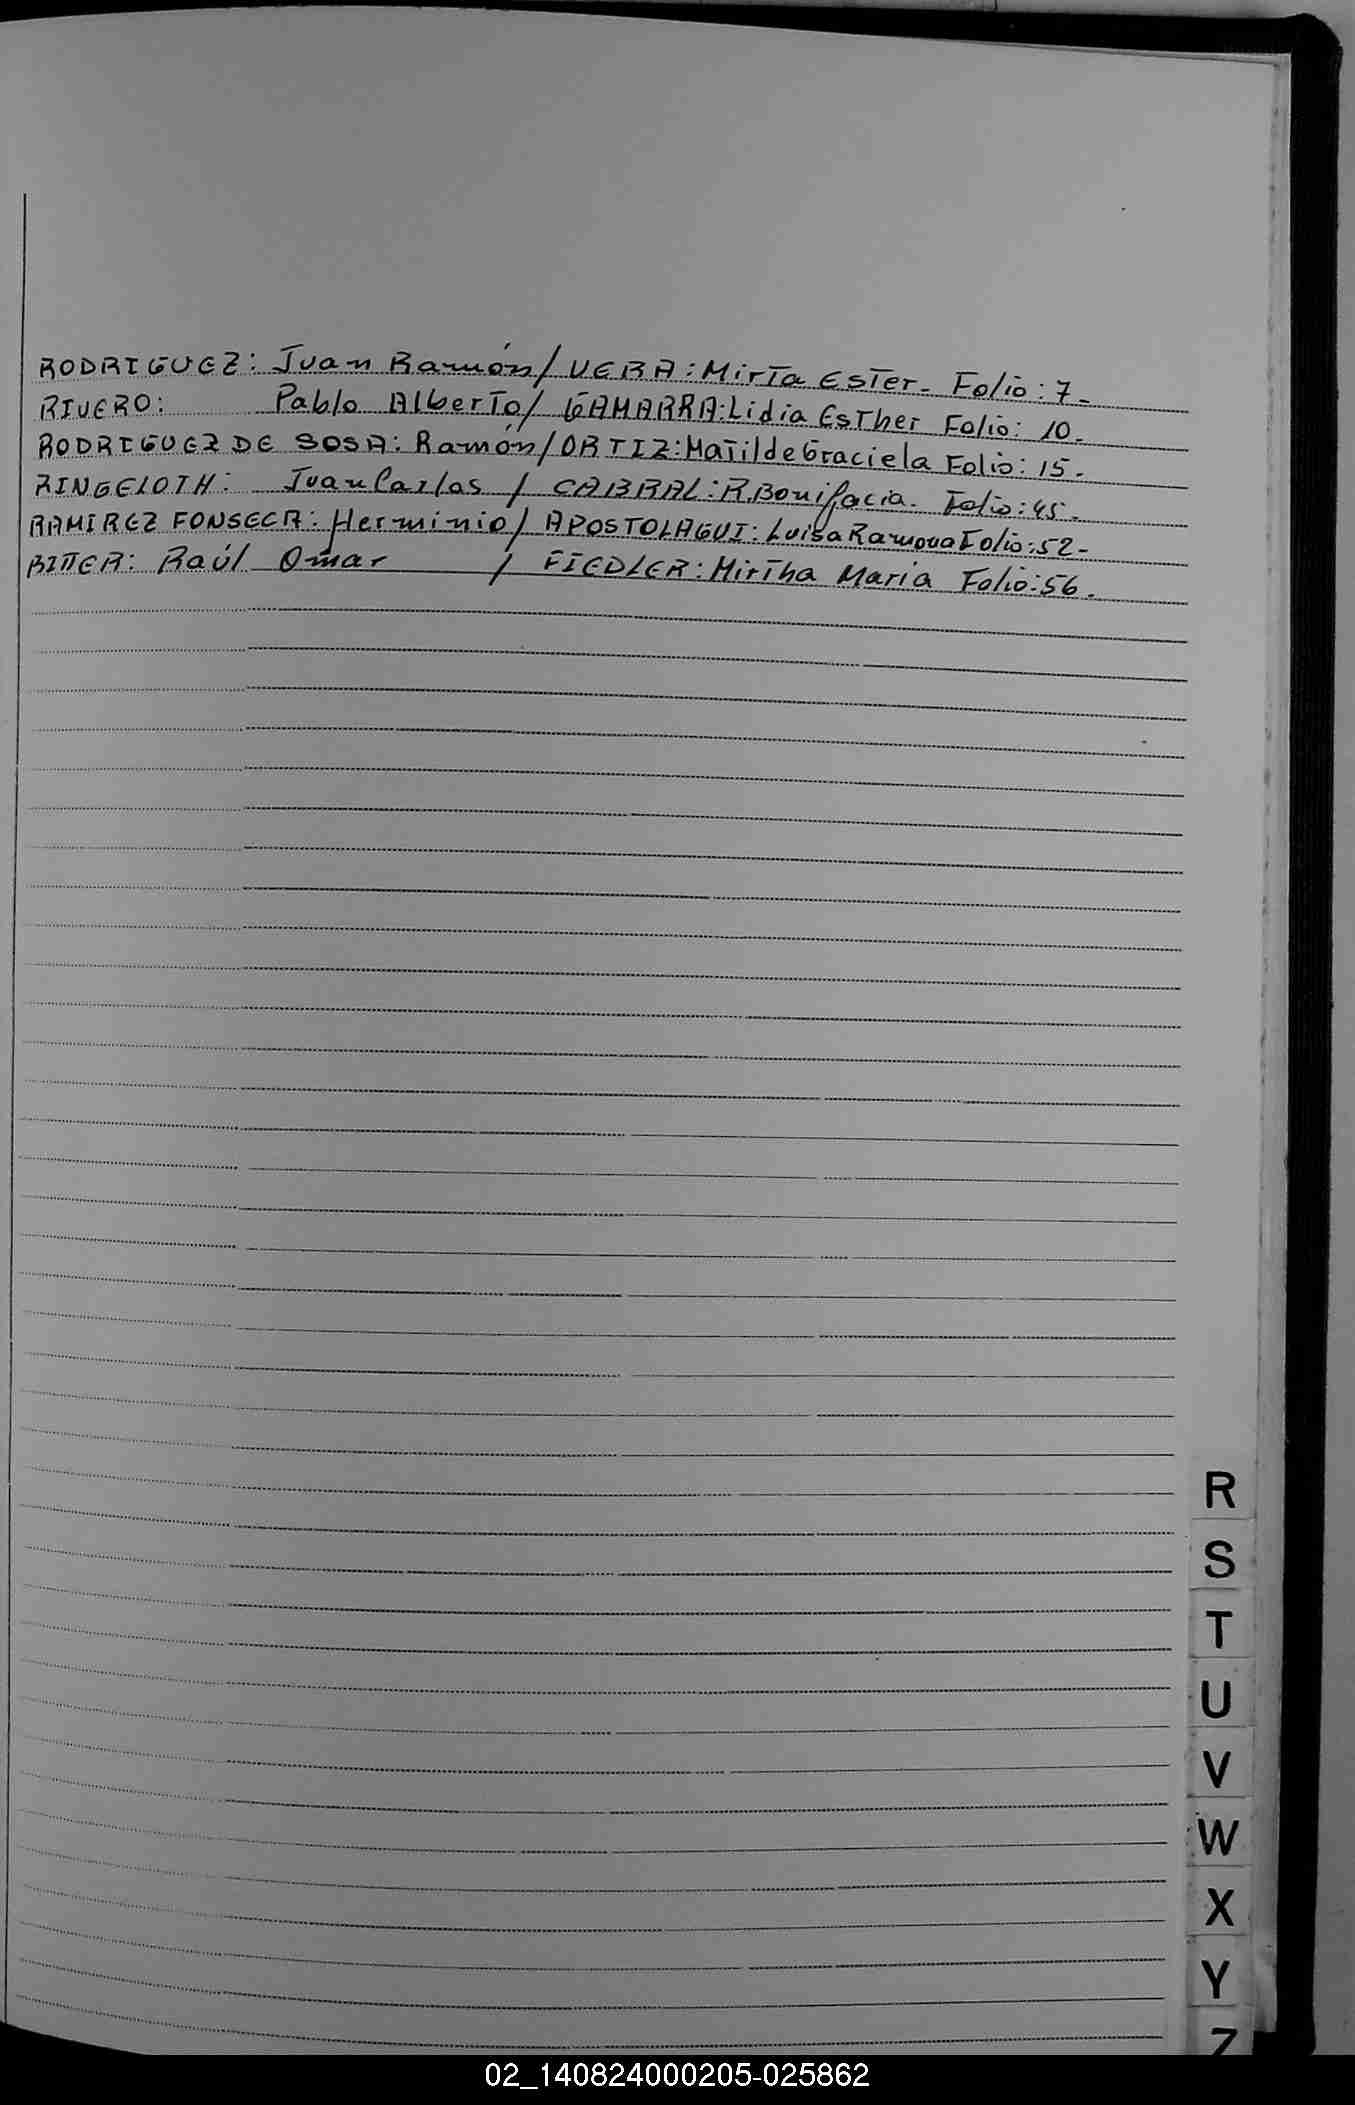 RODRIGUEZ: Juan Ramón/ VERA: Mirta Ester. Folio: 7.
RIVERO: Pablo Alberto/ GAMARRA: Lidia Esther Folio: 10.
RODRIGUEZ DE SOSA: Ramón/ ORTIZ: Matilde Graciela Folio: 15.
RINGELOTH: Juan Carlos / CABRAL: R. Bonifacia. Folio: 45.
RAMIREZ FONSECA: Herminio/ APOSTOLAGUI: Luisa Ramona Folio: 52-
RITTER: Raúl Omar / FIEDLER: Mirtha Maria Folio: 56.
R
S
T
U
V
W
X
Y
Z
02_140824000205-025862